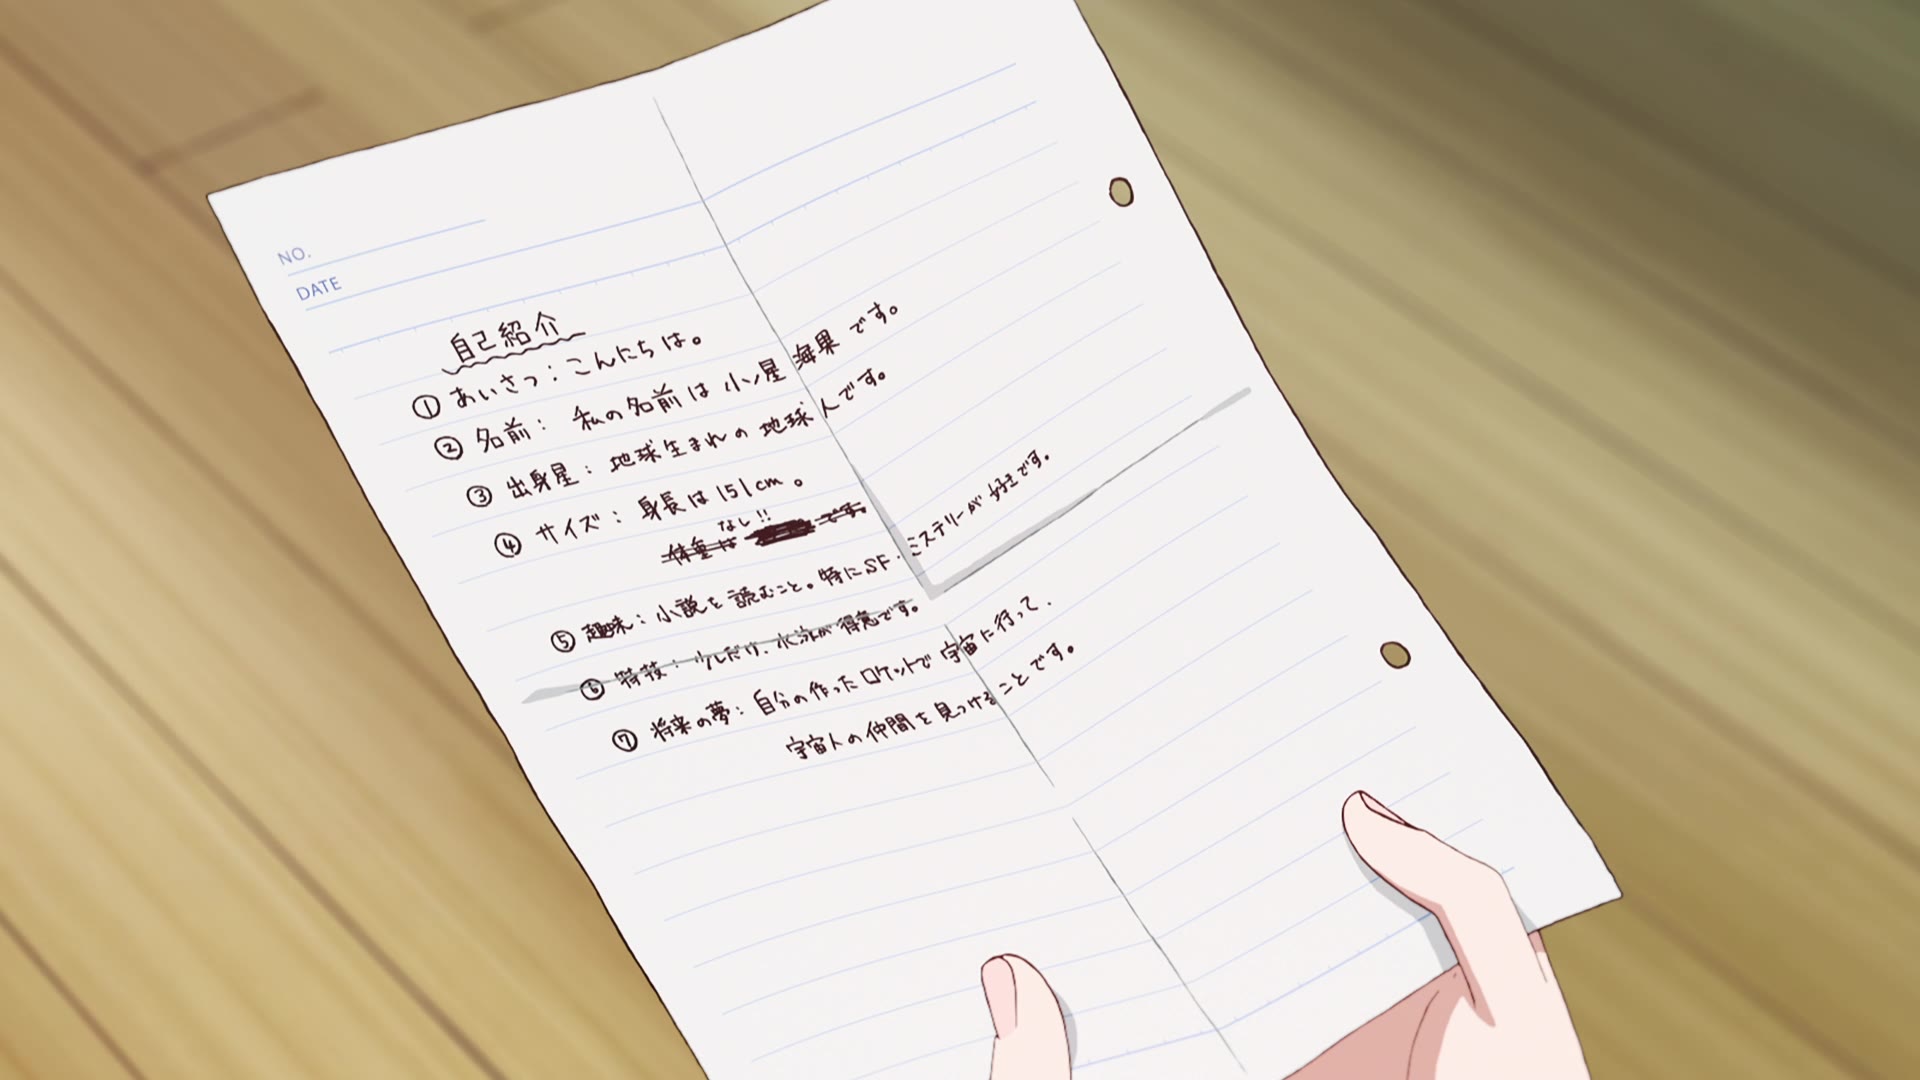 NO.
DATE
自己紹介
① あいさつ：こんにちは。
② 名前： 私の名前は小ノ星海果です。
③ 出身星： 地球生まれの地球人です。
④ サイズ： 身長は151cm。
なし!!
体重は です。
⑤ 趣味：小説を読むこと。特にSF・ミステリーが好きです。
⑥ 特技：少しだけ、水泳が得意です。
⑦ 将来の夢：自分の作ったロケットで宇宙に行って、
宇宙人の仲間を見つけることです。